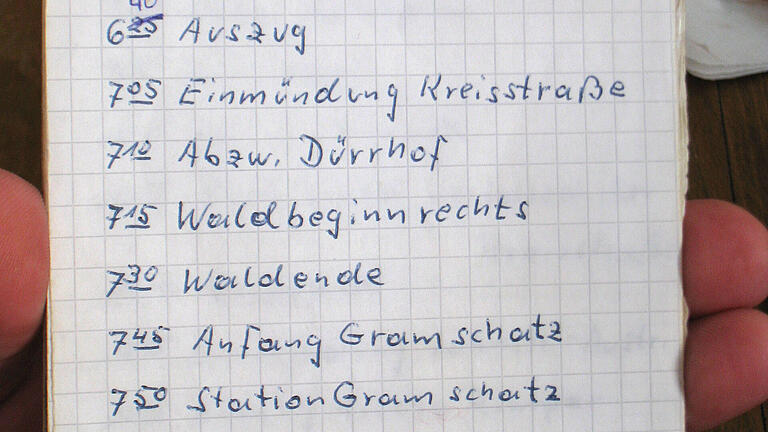 40
6 25 Auszug
7 05 Einmündung Kreisstraße
7 10 Abzw. Dürrhof
7 15 Waldbeginn rechts
7 30 Waldende
7 45 Anfang Gramschatz
7 50 Station Gramschatz